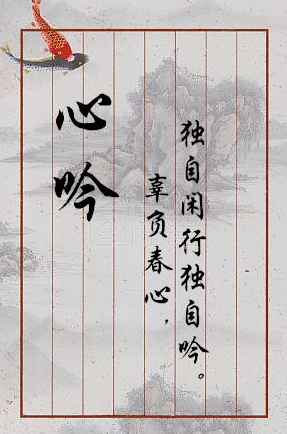 心吟
辜负春心，
独自闲行独自吟。